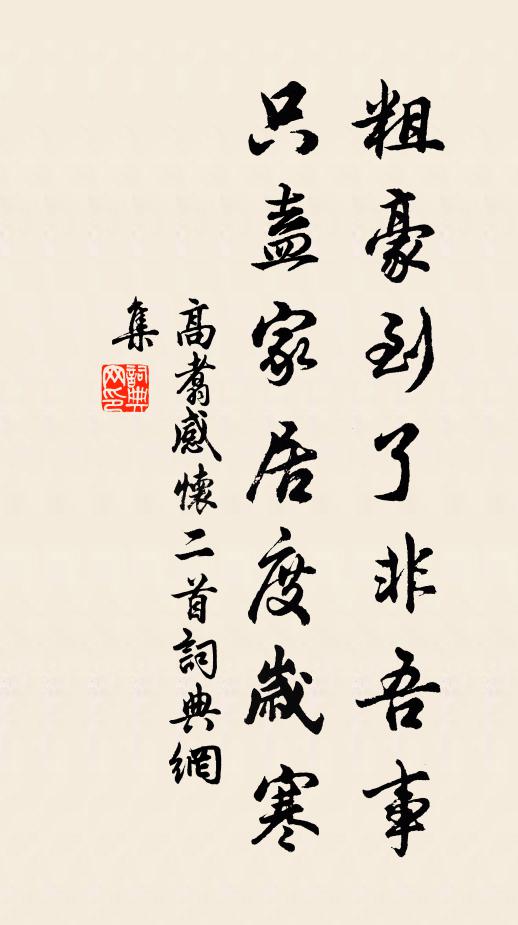 粗豪到了非吾事
只盍家居度歲寒
高翥感懷二首詞典網
集
詞典
网印